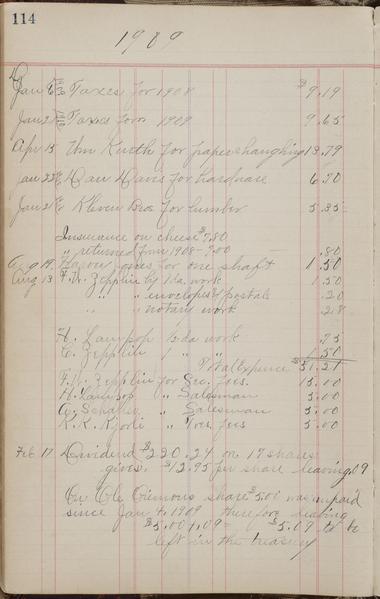 114
1909
Jan 6 Taxes for 1908 $9.19
Jan 21 Taxes for 1909 9.65
Apr 15 Wm Kurth for paperhanging 13.79
Jan 22 Dan Davis for hardware 6.70
Jan 21 Kleven Bros for lumber 5.35
Insurance on cheese $7.80
" returned from 1908 - 7.00 .80
Aug 19 Jones for one shaft 1.50
Aug 13 F. W. Zepplin 1 da. work 1.50
" " envelopes & postals .20
" " notary work
H. Lampop ½ da work .75
C. Zepplin 1 " " 1.50
Total Expence $51.21
F. W. Zepplin for Sec. fees. 15.00
H. Lampop " Salesman 5.00
" Salesman 5.00
" Tres. fees 5.00
Feb 17 Dividend $220.24 on 17 shares
gives $12.95 per share leaving .09
On Ole share $5.00 was unpaid
since Jan 4, 1909 therefore leaving
$5.00 + .09 = $5.09 to be
left in the treasury